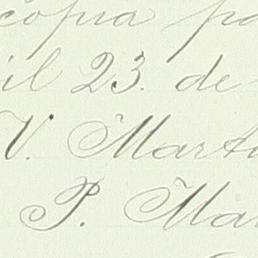 copia pa
il 23. de
V. Mart
P. Mar